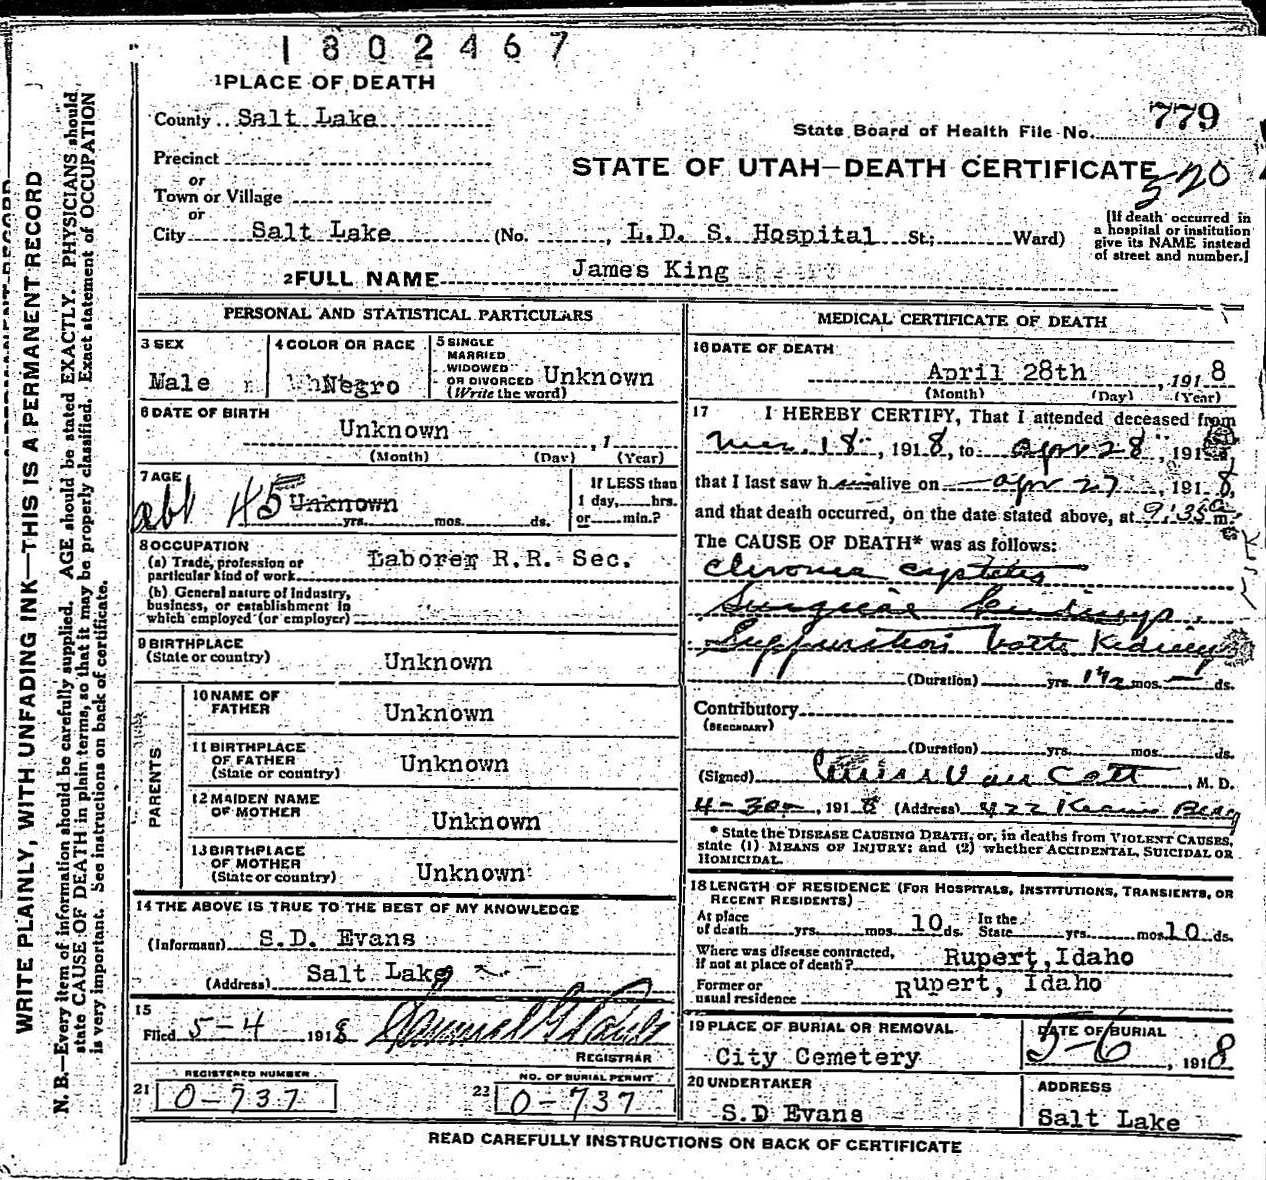 1802467
1 PLACE OF DEATH
County Salt Lake
State Board of Health File No. 779
Precinct
STATE OF UTAH—DEATH CERTIFICATE
520
or
Town or Village
or
City Salt Lake (No. , L.D. S. Hospital St; Ward)
[If death occurred in
a hospital or institution
give its NAME instead
of street and number.]
2 FULL NAME James King
PERSONAL AND STATISTICAL PARTICULARS
3 SEX
Male
4 COLOR OR RACE
Negro
5 SINGLE
MARRIED
WIDOWED
OR DIVORCED Unknown
(Write the word)
6 DATE OF BIRTH
Unknown , 1
(Month) (Day) (Year)
7 AGE
abt 45 Unknown
yrs. mos. ds.
If LESS than
1 day, hrs.
or min.?
8 OCCUPATION
(a) Trade, profession or
particular kind of work Laborer R.R. Sec.
(b) General nature of Industry,
business, or establishment in
which employed (or employer)
9 BIRTHPLACE
(State or country) Unknown
PARENTS
10 NAME OF
FATHER Unknown
11 BIRTHPLACE
OF FATHER
(State or country) Unknown
12 MAIDEN NAME
OF MOTHER Unknown
13 BIRTHPLACE
OF MOTHER
(State or country) Unknown
14 THE ABOVE IS TRUE TO THE BEST OF MY KNOWLEDGE
(Informant) S.D. Evans
(Address) Salt Lake
15
Filed 5-4 1918
REGISTRAR
REGISTERED NUMBER
21 0-737
NO. OF BURIAL PERMIT
22 0-737
MEDICAL CERTIFICATE OF DEATH
16 DATE OF DEATH
April 28th , 1918
(Month) (Day) (Year)
17 I HEREBY CERTIFY, That I attended deceased from
18, 1918, to Apr 28, 191
that I last saw h im alive on Apr 27, 1918,
and that death occurred, on the date stated above, at 9:35 a m.
The CAUSE OF DEATH* was as follows:
Chronic cystitis
Surgical kidneys,
Suppuration both Kidneys
(Duration) yrs. 1 1/2 mos. — ds.
Contributory
(SECONDARY)
(Duration) yrs. mos. ds.
(Signed) Van Cott, M. D.
4-30, 1918 (Address) 422 Kearns Bldg
* State the DISEASE CAUSING DEATH, or, in deaths from VIOLENT CAUSES,
state (1) MEANS OF INJURY; and (2) whether ACCIDENTAL, SUICIDAL OR
HOMICIDAL.
18 LENGTH OF RESIDENCE (FOR HOSPITALS, INSTITUTIONS, TRANSIENTS, OR
RECENT RESIDENTS)
At place
of death yrs. mos. 10 ds. In the
State yrs. mos. 10 ds.
Where was disease contracted,
if not at place of death? Rupert, Idaho
Former or
usual residence Rupert, Idaho
19 PLACE OF BURIAL OR REMOVAL
City Cemetery
DATE OF BURIAL
5-6, 1918
20 UNDERTAKER
S.D Evans
ADDRESS
Salt Lake
READ CAREFULLY INSTRUCTIONS ON BACK OF CERTIFICATE
WRITE PLAINLY, WITH UNFADING INK—THIS IS A PERMANENT RECORD
N. B.—Every item of information should be carefully supplied. AGE should be stated EXACTLY. PHYSICIANS should
state CAUSE OF DEATH in plain terms, so that it may be properly classified. Exact statement of OCCUPATION
is very important. See instructions on back of certificate.